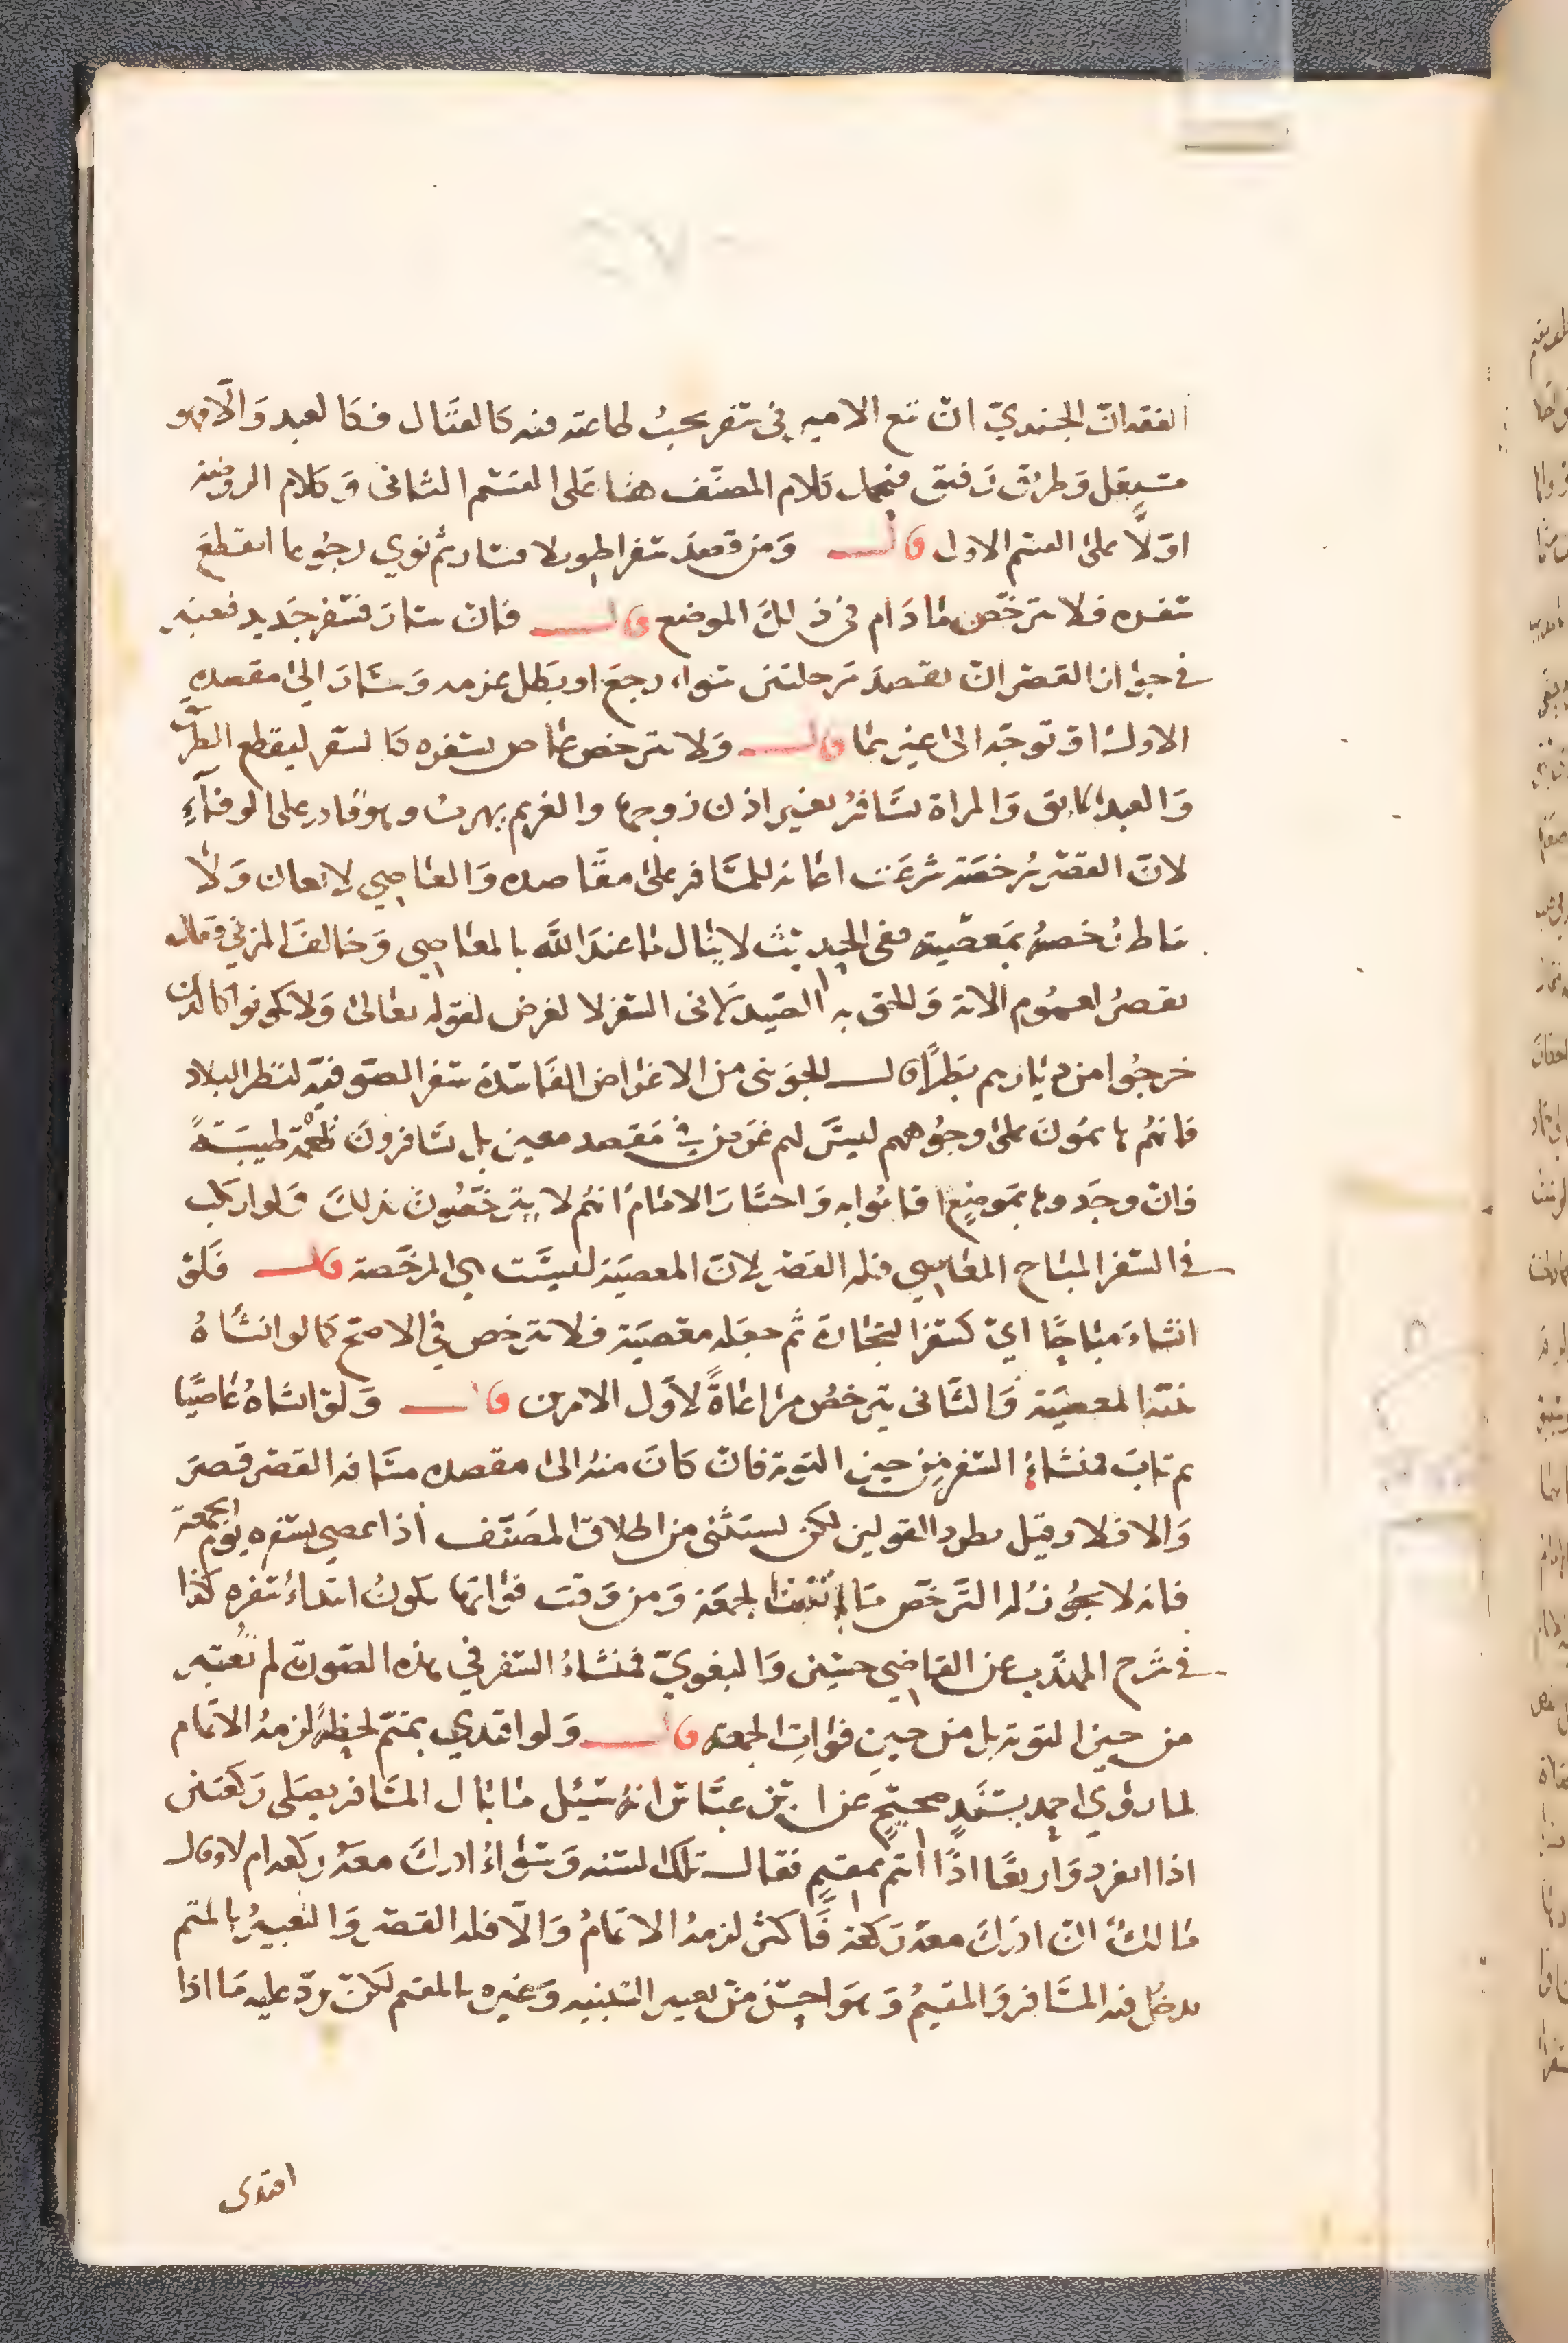 الفقد ان الجندي ان تبع الامير في سفر يجب طاعته فيه كالقتال فكالعبد والا فهو
مستقل وطريق رفيق فيحمل كلام المصنف هنا على القسم الثاني وكلام الروضه
اولا على القسم الاول قال ومن قصد سفرا طويلا فسار ثم نوي رجوعا انقطع
سفره فلا يترخص ما دام في ذلك الموضع قال فان سار فسفر جديد فيعتبر
في جواز القصر ان يقصد مرحلتين سواء رجع او بطل عزمه وسار الى مقصده
الاول او توجه الى غيرهما قال ولا يترخص عاص بسفره كالسفر ليقطع الطريق
والعبد الابق والمراة تسافر بغير اذن زوجها والغريم يهرب وهو قادر على الوفاء
لان القصر رخصة شرعت اعانة للمسافر على مقاصده والعاصي لا يعان ولا
تناط رخصة بمعصية ففي الحديث لا ينال ما عند الله بالمعاصي وخالف المزني وقال
يقصر لعموم الاية والحق به الصيدلاني السفر لا لغرض لقوله تعالى ولا تكونوا كالذين
خرجوا من ديارهم بطرا قال الجويني من الاغراض الفاسدة سفر الصوفية لنظر البلاد
فانهم هايمون على وجوههم ليس لهم غرض في مقصد معين بل يسافرون طيبة
فان وجدوها بموضع اقاموا به واختار الامام انهم لا يترخصون بذلك فلو ارتكب
في السفر المباح المعاصي فله القصر لان المعصية ليست هي المرخصة قال فلو
انشاء مباحا اي كسفر التجارة ثم جعله معصية فلا ترخص في الاصح كما لو انشاه
بهذا المعصية والثاني يترخص مراعاة لاول الامرين قال ولو انشاه عاصيا
ثم تاب فمنشاء السفر من حين التوبة فان كان منه الى مقصده مسافة القصر قصر
والا فلا وقيل بطرد القولين لكن يستثنى من اطلاق المصنف اذا عصى بسفره يوم الجمعة
فانه لا يجوز له الترخص ما لم تفت الجمعة ومن وقت فواتها يكون ابتداء سفره كذا
في شرح المهذب عن القاضي حسين والبغوي فمنشاء السفر في هذه الصورة لم يعتبر
من حين التوبة بل من حين فوات الجمعة قال ولو اقتدي بمتم لحظة لزمه الاتمام
لما روي احمد بسند صحيح عن ابن عباس انه سئل ما بال المسافر يصلي ركعتين
اذا انفرد واربعا اذا ائتم بمقيم فقال تلك السنه وسواء ادرك معه ركعة ام لا وقال
مالك ان ادرك معه ركعة فاكثر لزمه الاتمام والا فله القصر والتعبير بالمتم
يدخل فيه المسافر والمقيم وهو احسن من تعبير التنبيه وغيره بالمقيم لكن يرد عليه ما اذا
اقتدى